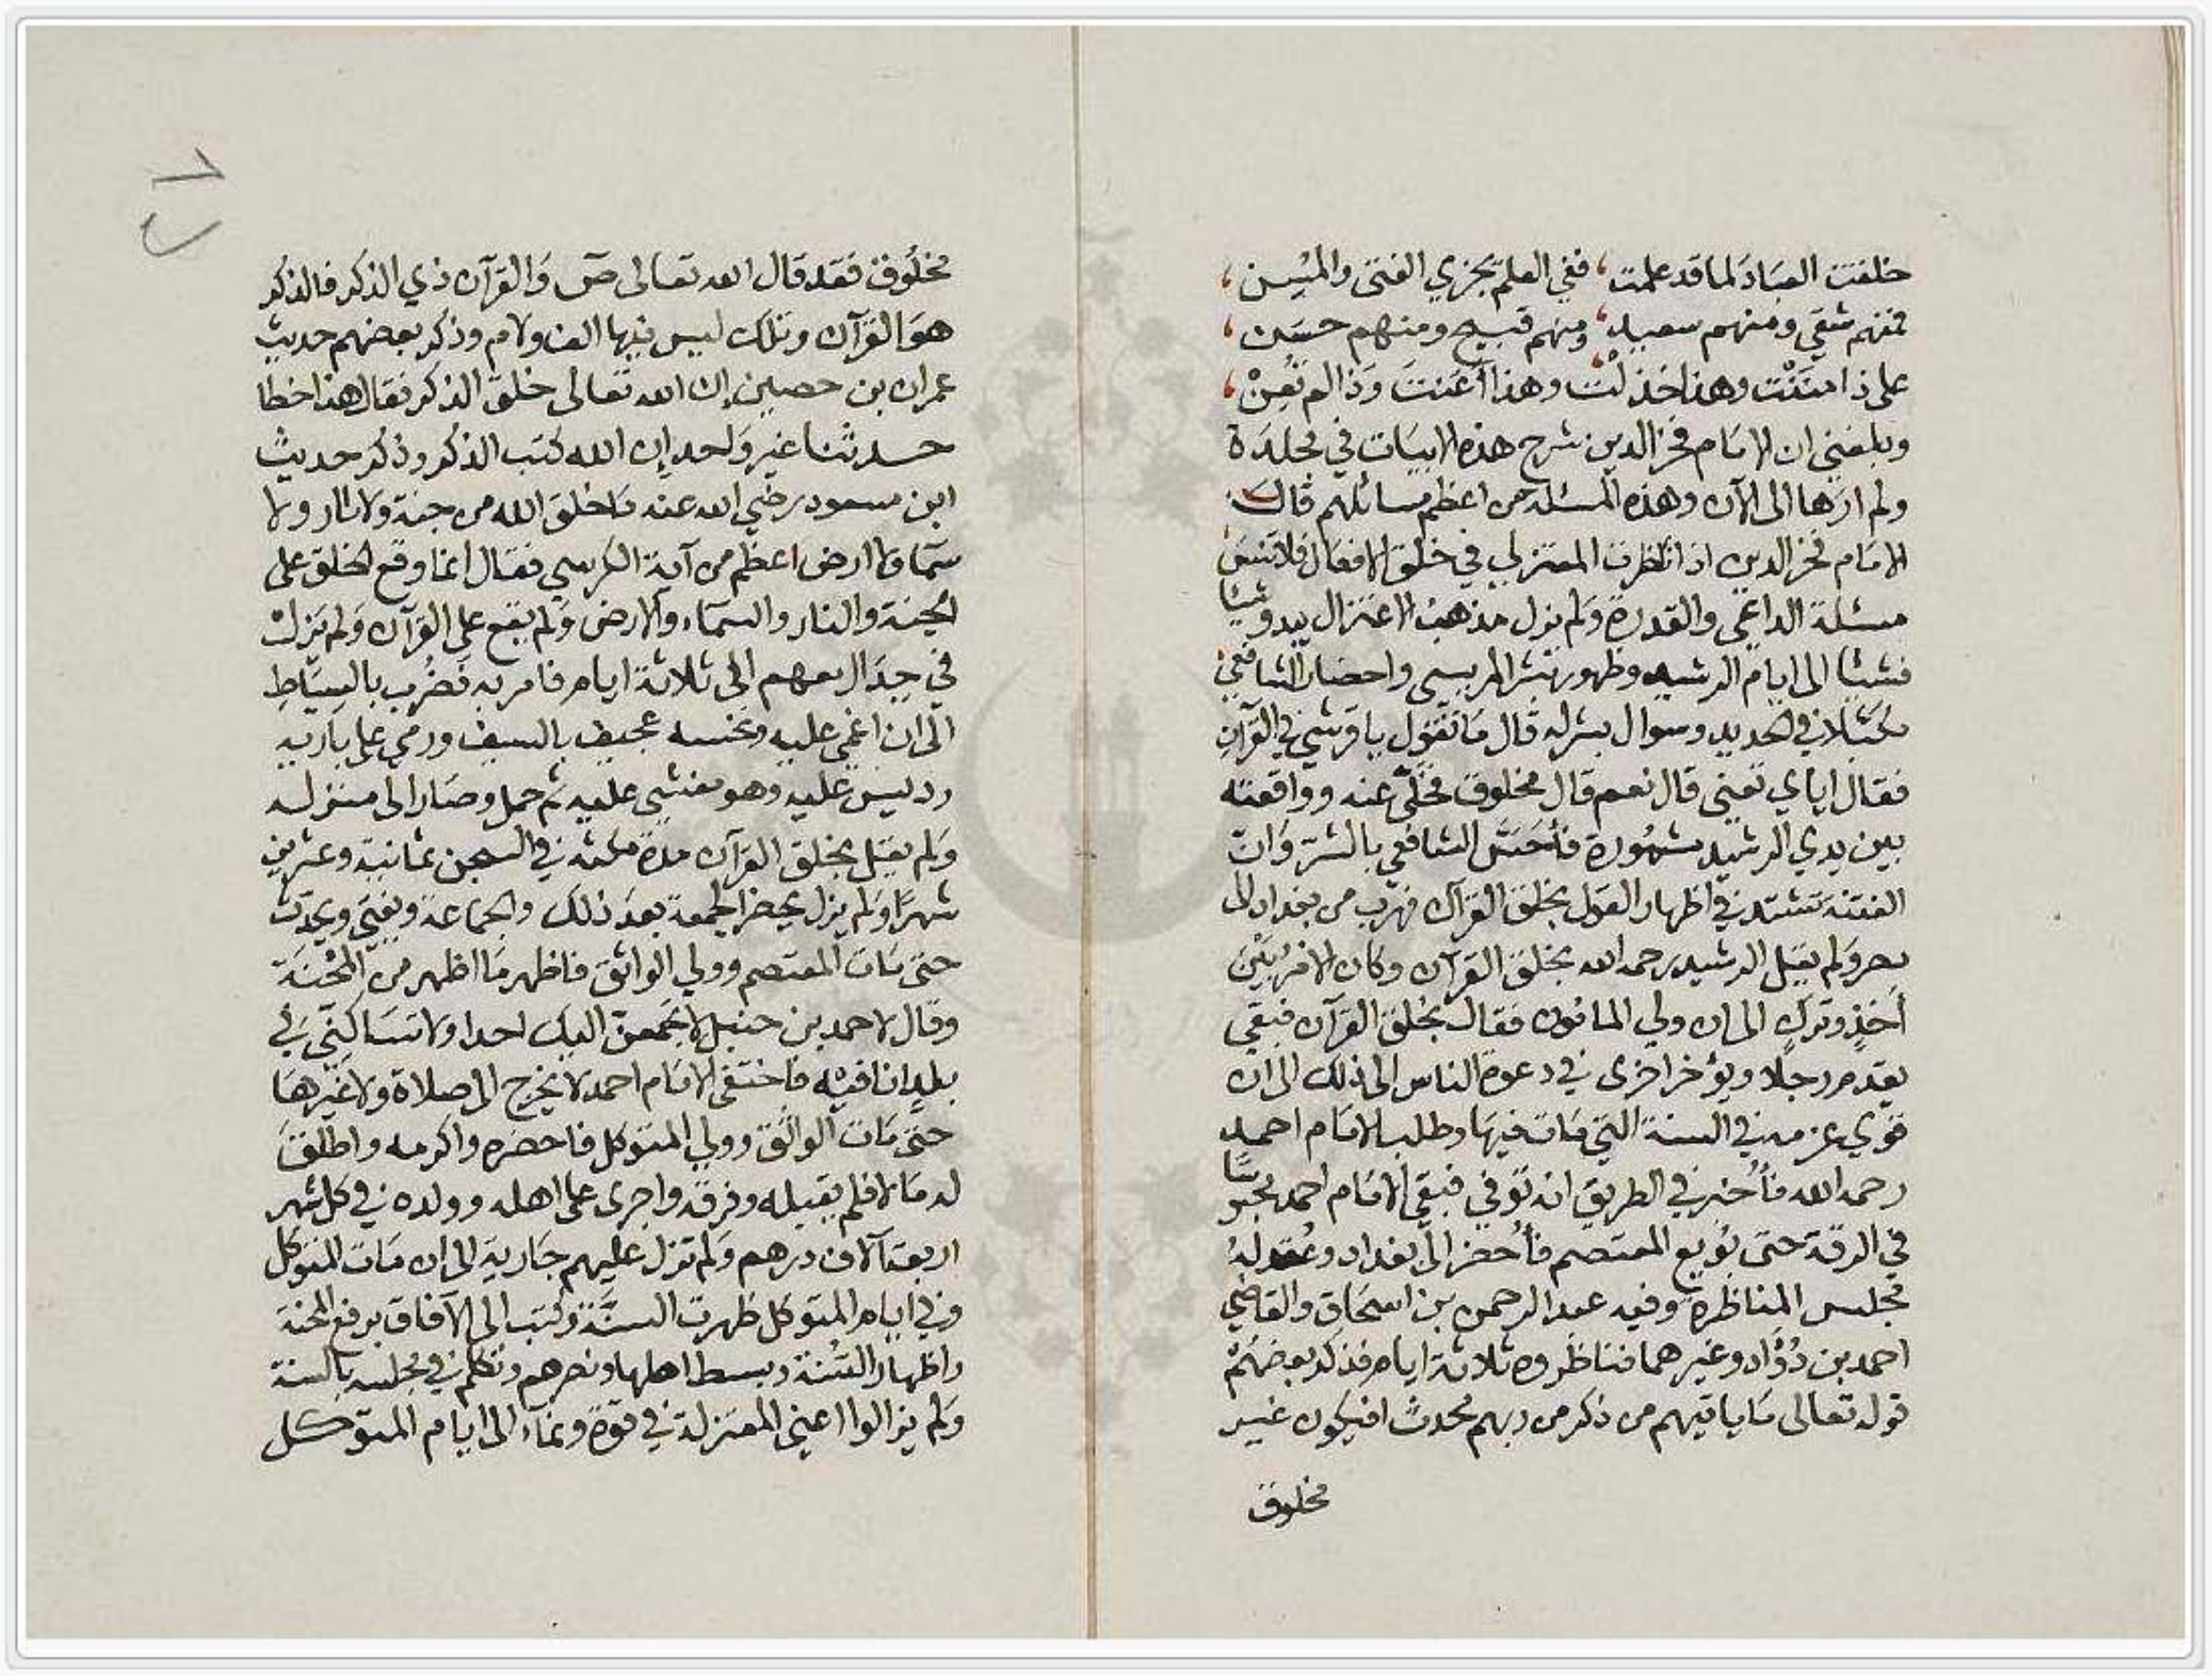 خلقت العبادَ لما قد علمت، ففي العلم يجزي الفتى والمسن،
فمنهم شقي ومنهم سعيد، ومنهم قبيح ومنهم حسن،
على ذا مننت وهذا خذلت وهذا أعنت وذا لم تُعِنْ،
وبلغني ان الامام فخر الدين شرح هذه الابيات في مجلدة
ولم ارها الى الآن وهذه المسئلة من اعظم مسائلهم قال
الامام فخر الدين اذا ناظرت المعتزلي في خلق الافعال فلا تنسَ
مسئلة الداعي والقدرة ولم يزل مذهب الاعتزال يبدو شيئا
فشيئا الى ايام الرشيد وظهور بشر المريسي واحضار الشافعي
مكبّلا في الحديد وسوال بشر له قال ما تقول يا قرشي في القرآن
فقال اياي تعني قال نعم قال مخلوق فخلّى عنه وواقعته
بين يدي الرشيد مشهورة فأحسَّ الشافعي بالشر وان
الفتنة تشتد في اظهار القول بخلق القرآن فهرب من بغداد الى
مصر ولم يقبل الرشيد رحمه الله بخلق القرآن وكان الامر بين
أخذٍ وترك الى ان ولي المامون فقال بخلق القرآن فبقي
يقدم رجلا ويؤخر اخرى في دعوة الناس الى ذلك الى ان
قوي عزمه في السنة التي مات فيها وطلب الامام احمد
رحمه الله فأُخبر في الطريق انه توفي فبقي الامام احمد محبوسًا
في الرقة حتى بُويع المعتصم فأُحضر الى بغداد وعُقد له
مجلس المناظرة وفيه عبد الرحمن بن اسحاق والقاضي
احمد بن دُؤاد وغيرهما فناظروه ثلاثة ايام فذكر بعضهُمْ
قوله تعالى ما ياتيهم من ذكر من ربهم محدث افيكون غير
مخلوق
مخلُوق فقد قال الله تعالى صٓ والقرآن ذي الذكر فالذكر
هو القرآن وتلك ليس فيها الف ولام وذكر بعضهم حديث
عمران بن حصين إن الله تعالى خلق الذكر فقال هذا خطا
حدثنا غير واحد إن الله كتب الذكر وذكر حديث
ابن مسعود رضي الله عنه ما خلق الله من جنة ولا نار ولا
سمآ ولا ارض اعظم من آية الكرسي فقال انما وقع الخلق على
الجنة والنار والسماء والارض ولم يقع على القرآن ولم يزل
في جدال معهم الى ثلاثة ايام فامر به فضُرب بالسياطِ
الى ان اغمي عليه ونخسه عجيف بالسيف ورمي على بارية
رديس عليه وهو مغشي عليه ثم حمل وصار الى منزله
ولم يقل بخلق القرآن مدة مكثه في السجن ثمانية وعشرين
شهرًا ولم يزل يحضر الجمعة بعد ذلك والجماعة ويفتي ويحدث
حتى مات المعتصم وولي الواثق فاظهر ما اظهر من المحْنَة
وقال لاحمد بن حنبل لا تجمعنّ اليك احدا ولا تساكنّي في
بلدٍ انا فيه فاختفى الامام احمد لا يخرج الى صلاة ولا غيرها
حتى مات الواثق وولي المتوكل فاحضره واكرمه واطلق
له مالا فلم يقبله وفرقه واجرى على اهله وولده في كل شهر
اربعة آلاف درهم ولم تزل عليهم جارية الى ان مات المتوكل
وفي ايام المتوكل ظهرت السنَّة وكتب الى الآفاق برفع المحنة
واظهار السُنة وبسط اهلها ونصرهم وتكلم في مجلسه بالسنة
ولم يزالوا اعني المعتزلة في قوة ونماء الى ايام المتوكل